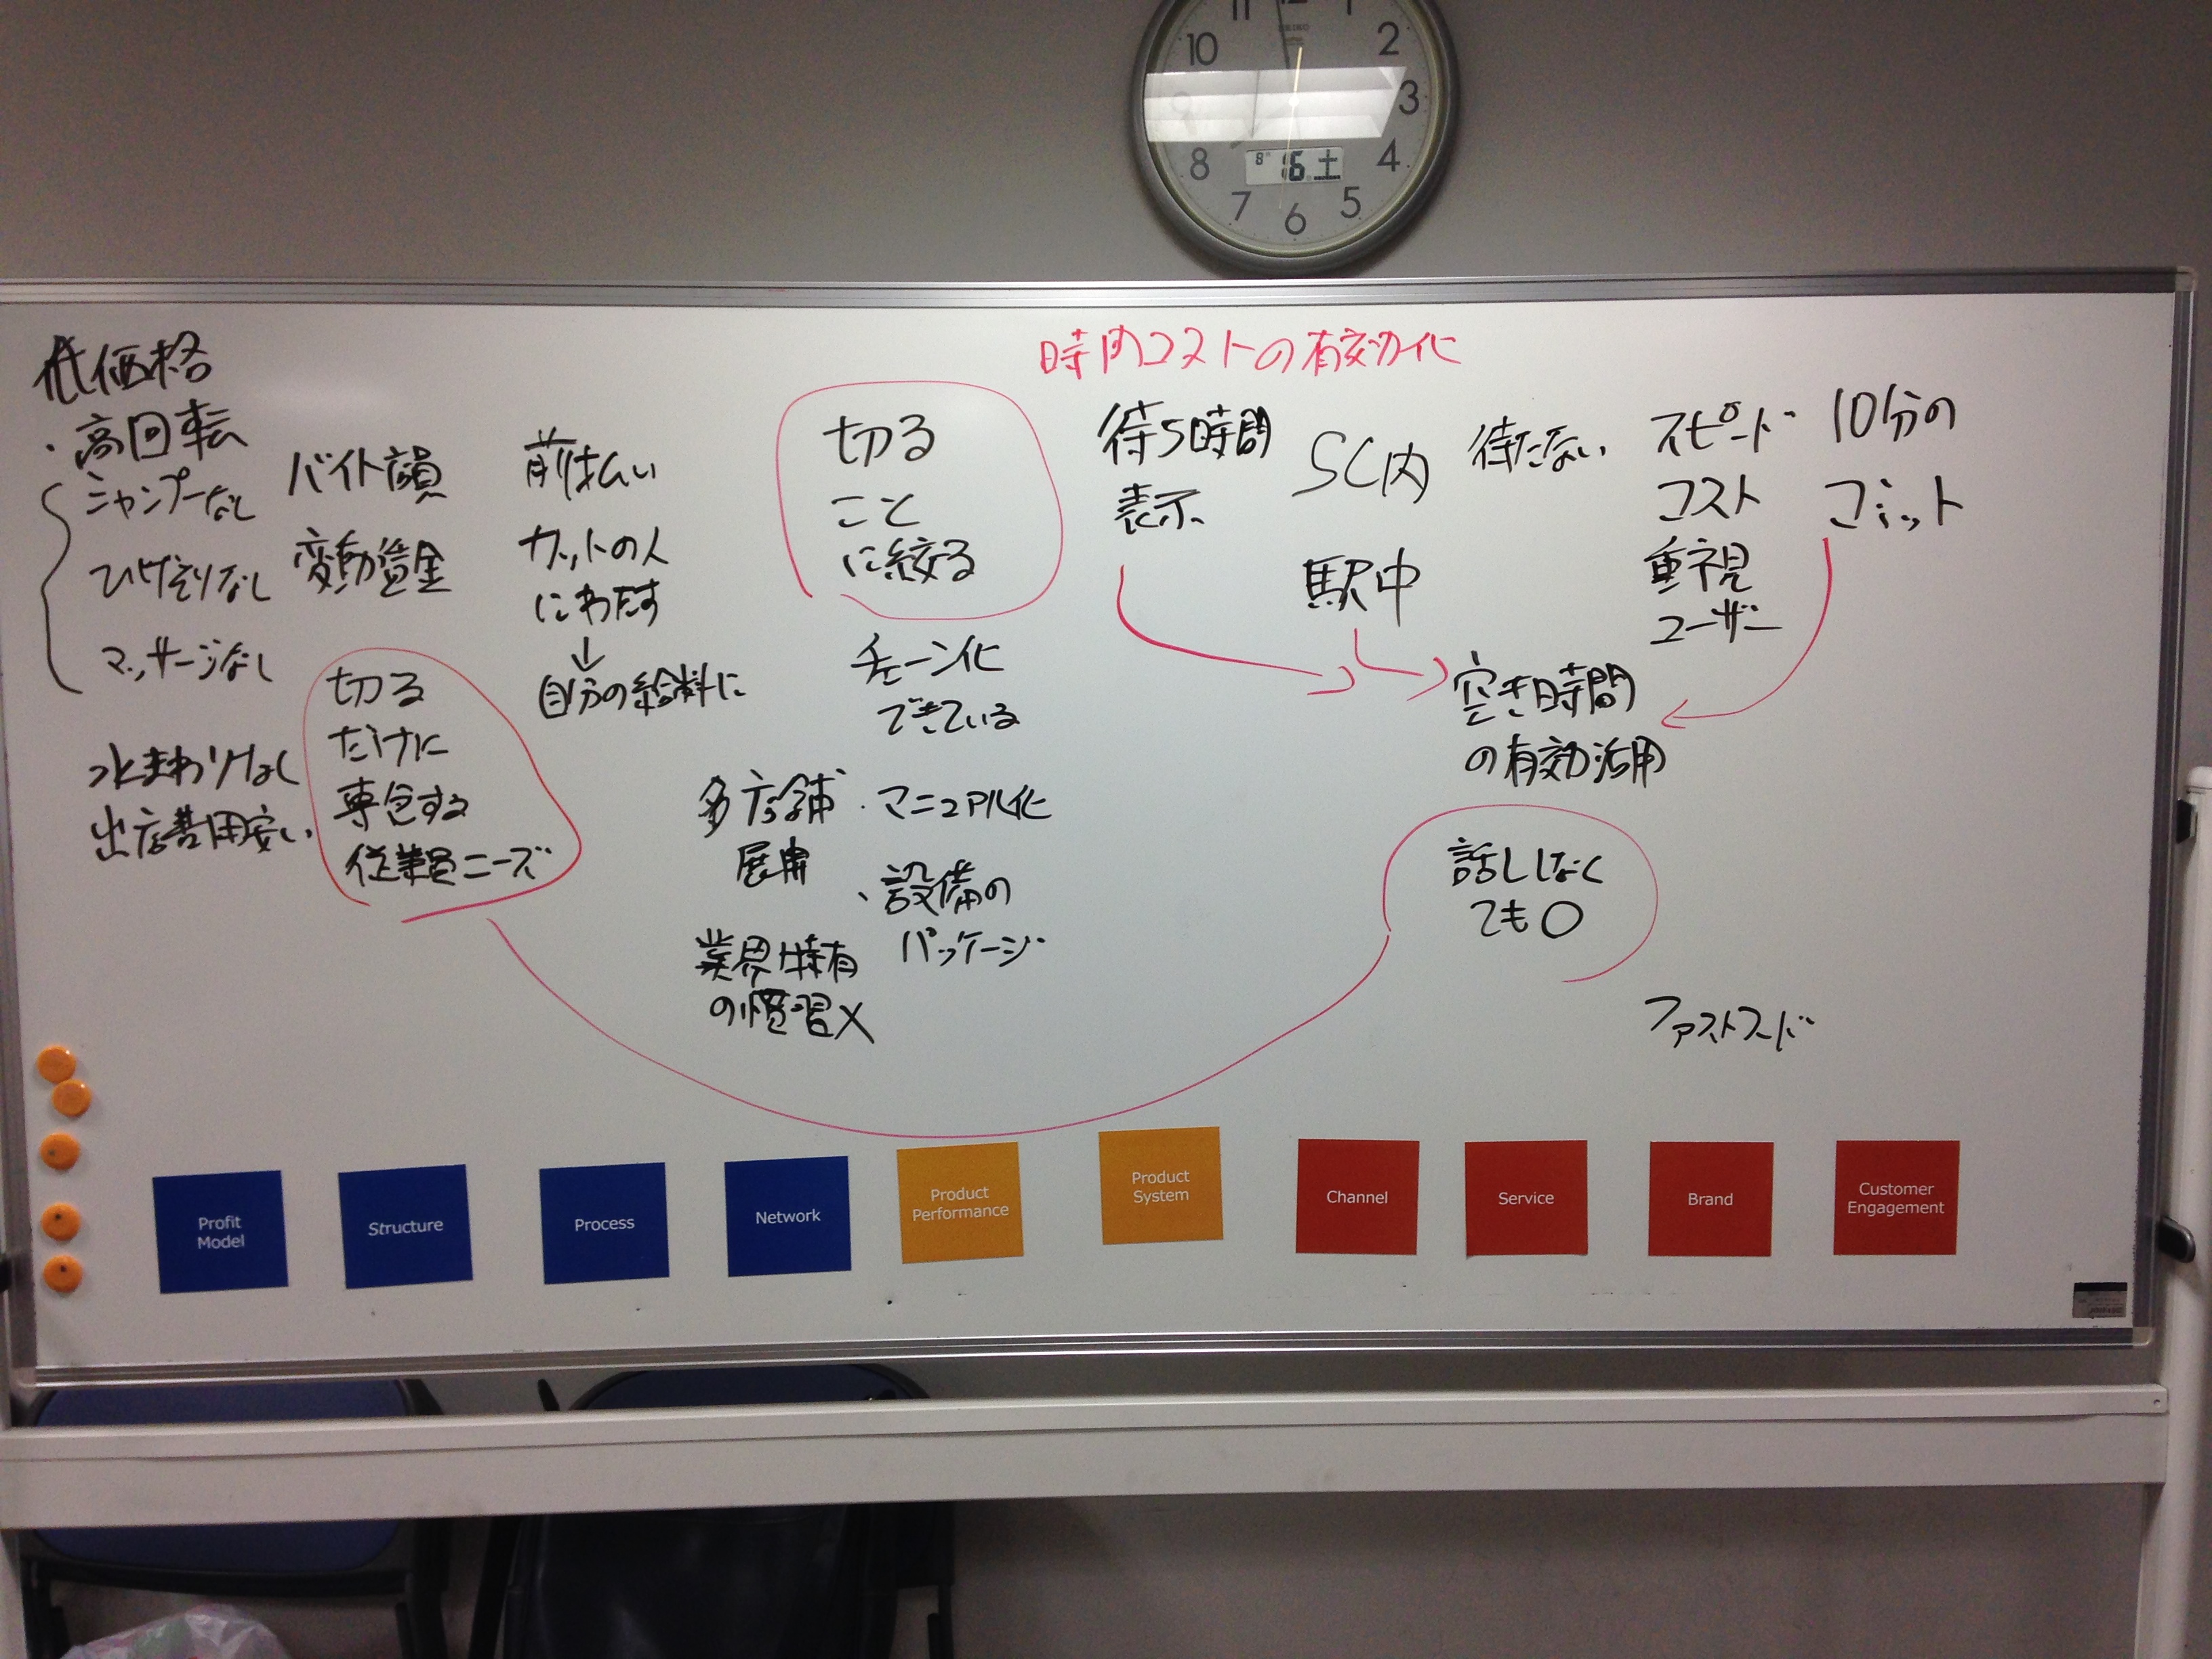 11 12 1
10 2
3
8 4
7 6 5
SEIKO
8 16 土
時間コストの有効化
低価格
・高回転
シャンプーなし
ひげそりなし
マッサージなし
水まわりなし
出店費用安い
変動賃金
切る
だけに
専念する
従業員ニーズ
前払い
カットの人
にわたす
↓
自分の給料に
切る
こと
に絞る
チェーン化
できている
多店舗
展開
・マニュアル化
・設備の
パッケージ
業界特有
の慣習×
待ち時間
表示
SC内
駅中
待たない
空き時間
の有効活用
話ししなく
ても○
スピード
コスト
重視
ユーザー
ファストフード
10分の
コミット
Profit
Model
Structure
Process
Network
Product
Performance
Product
System
Channel
Service
Brand
Customer
Engagement